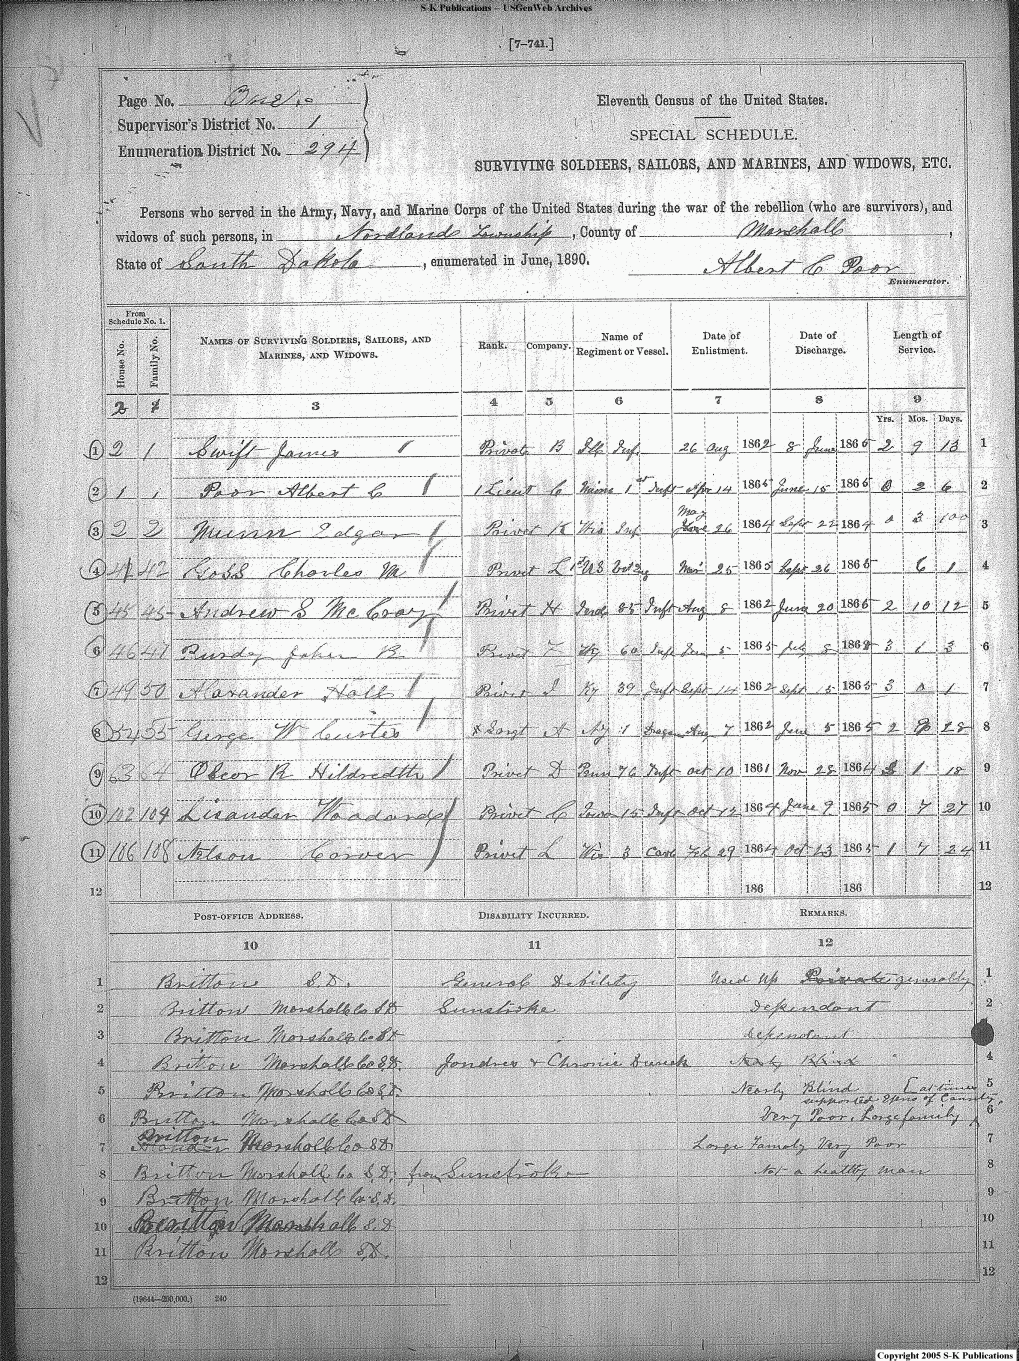 S-K Publications – USGenWeb Archives
[7–741.]
Page No. One
Supervisor's District No. 1
Enumeration District No. 294
Eleventh Census of the United States.
SPECIAL SCHEDULE.
SURVIVING SOLDIERS, SAILORS, AND MARINES, AND WIDOWS, ETC.
Persons who served in the Army, Navy, and Marine Corps of the United States during the war of the rebellion (who are survivors), and
widows of such persons, in Nordland Township, County of Marshall,
State of South Dakota, enumerated in June, 1890.
Albert C Poor
Enumerator.
From Schedule No. 1.
House No. Family No. NAMES OF SURVIVING SOLDIERS, SAILORS, AND MARINES, AND WIDOWS. Rank. Company. Name of Regiment or Vessel. Date of Enlistment. Date of Discharge. Length of Service.
2 1 3 4 5 6 7 8 9
Yrs. Mos. Days.
1 2 1 Swift James Private B Ill Inf. 26 Aug 1862 8 June 1865 2 9 13 1
2 1 1 Poor Albert C 1 Lieut C 1st Inft Apr 14 1865 June 15 1865 0 2 6 2
3 2 2 Munn Edgar Privet K Wis Inf May 26 1864 Sept 22 1864 0 3 100 3
4 41 42 Goss Charles M Privet L 1st US Mar 25 1865 Sept 26 1865 6 1 4
5 45 45 Andrew S McCrory Privet H Ind 85 Inft Aug 8 1862 June 20 1865 2 10 12 5
6 46 47 Purdey John R Privet F 60 Inf 5 1865 8 1868 3 1 3 6
7 49 50 Alaxander Hall Privet I Ky 39 Inft Sept 14 1862 Sept 15 1865 3 0 1 7
8 54 55 Gerge W Curtes Sargt A Ny 1 Dragon Aug 7 1862 June 5 1865 2 28 8
9 63 64 Obcor R Hildredth Privet D Penn 76 Inft oct 10 1861 Nov 28 1864 3 1 18 9
10 102 104 Lisander Woodard Privet C Iowa 15 Inft Oct 12 1864 June 9 1865 0 7 27 10
11 106 108 Nelson Corver Privet L Wis 3 Cavl Feb 29 1864 Oct 23 1865 1 7 24 11
12 186 186 12
POST-OFFICE ADDRESS. DISABILITY INCURRED. REMARKS.
10 11 12
1 Britton S.D. General Debility Used Up Private generally 1
2 Britton Marshall Co SD Sunstroke Dependant 2
3 Britton Marshall Co SD Dependant
4 Britton Marshall Co S.D. Jondres & Chronic Nearly Blind 4
5 Britton Marshall Co S.D. Nearly Blind [at times 5
supported Expns of County
6 Britton Marshall Co S D Very Poor, Large family 6
Britton
7 Marshall Co SD Large Famaly Very Poor 7
8 Britton Marshall Co S.D. from Sunstroke Not a healthy man 8
9 Britton Marshall Co S.D. 9
10 Britton Marshall S.D 10
11 Britton Marshall S.D. 11
12 12
(19644—200,000.) 240
Copyright 2005 S-K Publications